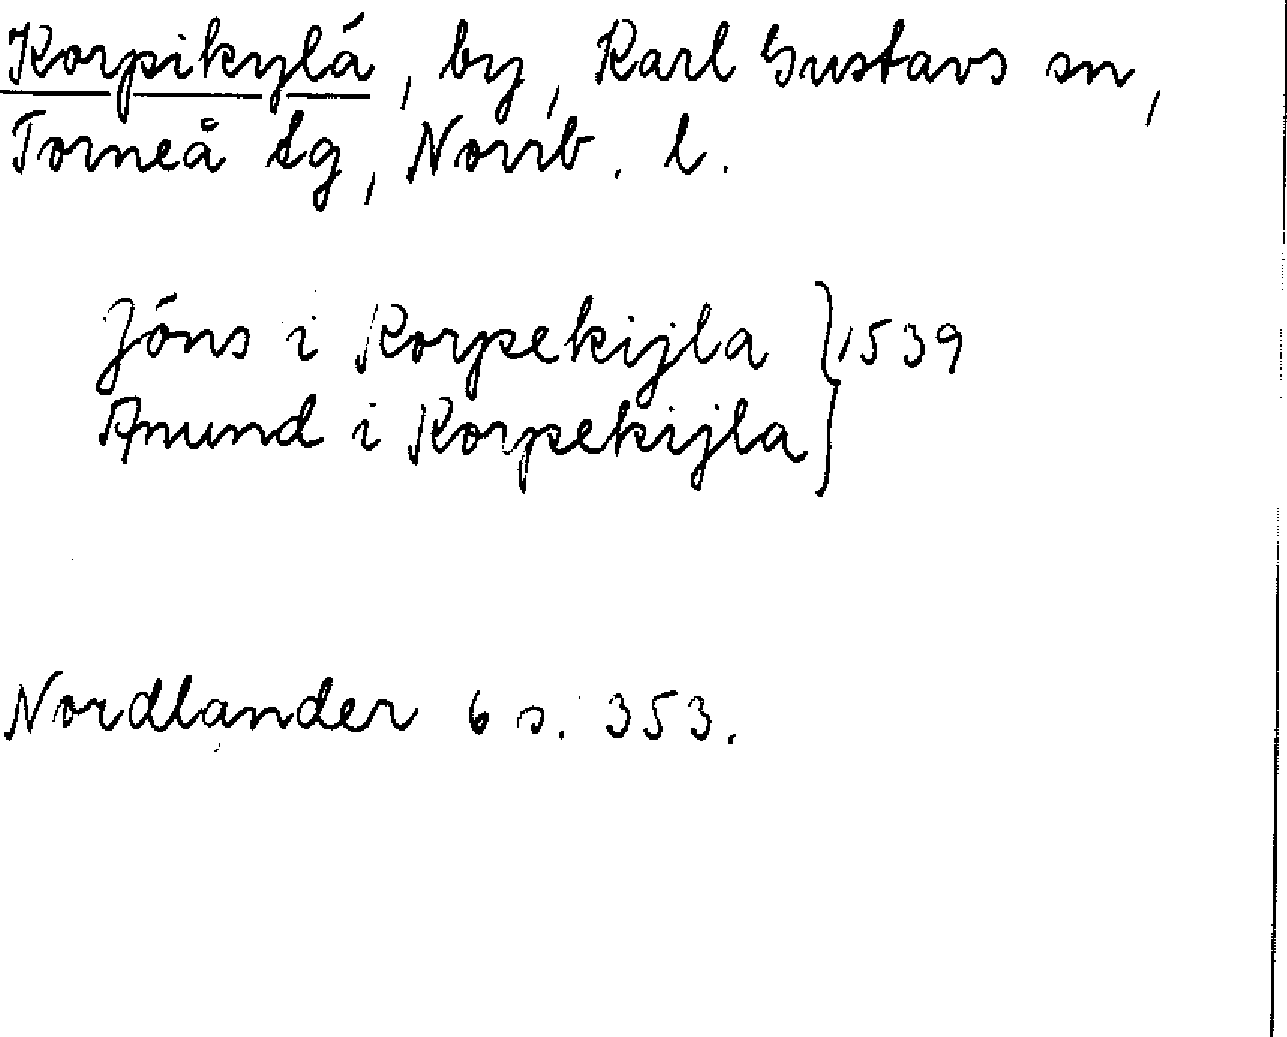 Korpikylä, by, Karl Gustavs sn,
Torneå tg, Norrb. l.
Jöns i Korpekijla } 1539
Anund i Korpekijla }
Nordlander 6 s. 353.